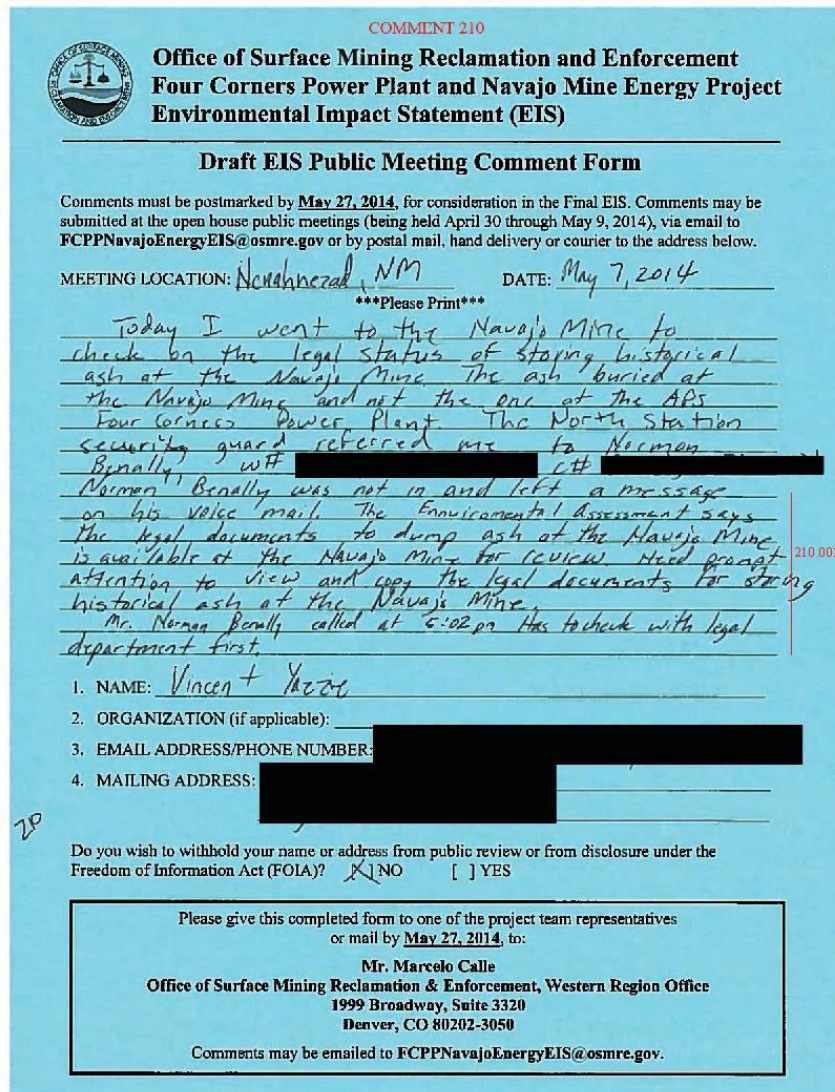 COMMENT 210
Office of Surface Mining Reclamation and Enforcement
Four Corners Power Plant and Navajo Mine Energy Project
Environmental Impact Statement (EIS)
Draft EIS Public Meeting Comment Form
Comments must be postmarked by May 27, 2014, for consideration in the Final EIS. Comments may be
submitted at the open house public meetings (being held April 30 through May 9, 2014), via email to
FCPPNavajoEnergyEIS@osmre.gov or by postal mail, hand delivery or courier to the address below.
MEETING LOCATION: Nenahnezad, NM DATE: May 7, 2014
***Please Print***
Today I went to the Navajo Mine to
check on the legal status of storing historical
ash at the Navajo Mine. The ash buried at
the Navajo Mine and not the one at the APS
Four Corners Power Plant. The North Station
security guard referred me to Norman
Benally, w# c#
Norman Benally was not in and left a message
on his voice mail. The Ennuiromental Assessment says
the legal documents to dump ash at the Navajo Mine
is available at the Navajo Mine for review. Need prompt
attention to view and copy the legal documents for storing
historical ash at the Navajo Mine.
210.001
Mr. Norman Benally called at 5:02 pm Has to check with legal
department first.
1. NAME: Vincent Yazzie
2. ORGANIZATION (if applicable):
3. EMAIL ADDRESS/PHONE NUMBER:
4. MAILING ADDRESS:
20
Do you wish to withhold your name or address from public review or from disclosure under the
Freedom of Information Act (FOIA)? [X] NO [ ] YES
Please give this completed form to one of the project team representatives
or mail by May 27, 2014, to:
Mr. Marcelo Calle
Office of Surface Mining Reclamation & Enforcement, Western Region Office
1999 Broadway, Suite 3320
Denver, CO 80202-3050
Comments may be emailed to FCPPNavajoEnergyEIS@osmre.gov.